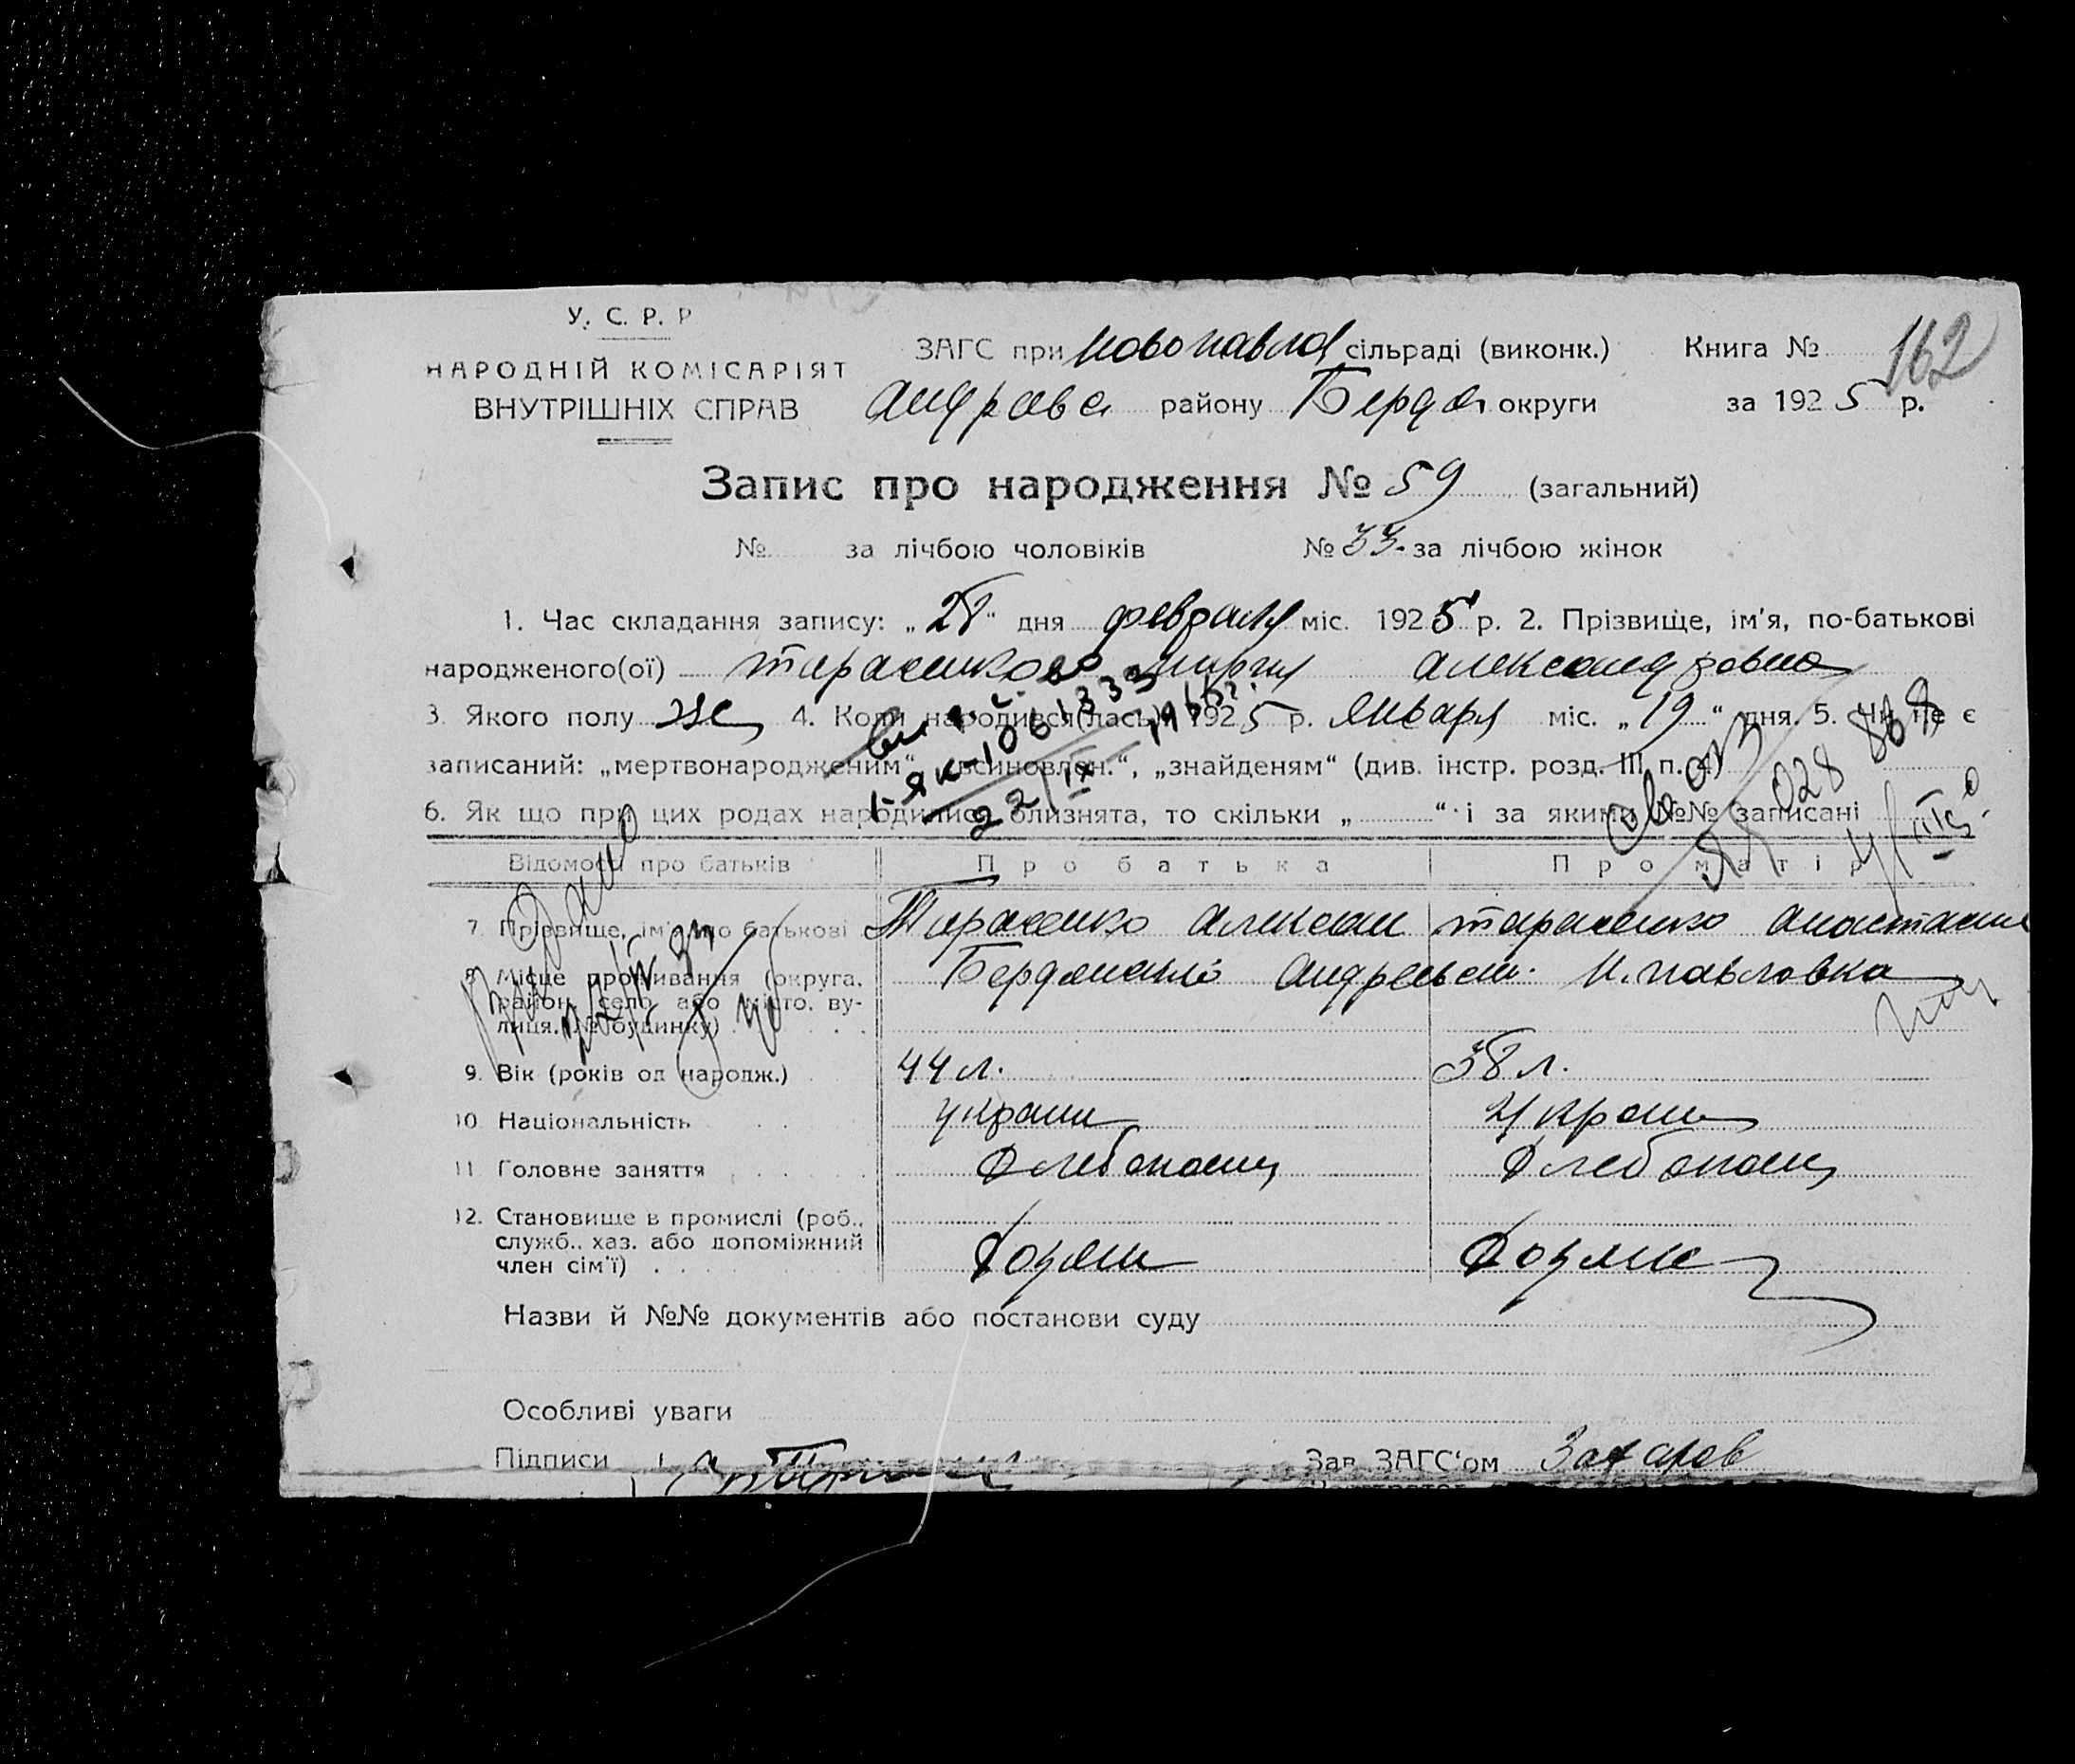 У. С. Р. Р
НАРОДНІЙ КОМІСАРІЯТ
ВНУТРІШНІХ СПРАВ
ЗАГС при Новопавлов сільраді (виконк.) Книга № 162
Андреев району Бердян округи за 1925 р.
Запис про народження № 59 (загальний)
№ за лічбою чоловіків № 33 за лічбою жінок
1. Час складання запису: „28“ дня февраля міс. 1925 р. 2. Прізвище, ім'я, по-батькові
народженого(ої) Тарасенково Мария Александровна
3. Якого полу же 4. Коли народився(лась) 1925 р. Января міс. „19“ дня. 5. Чи не є
записаний: „мертвонародженим“ „всиновлен.“, „знайденям“ (див. інстр. розд. III п. 4)
6. Як що при цих родах народились близнята, то скільки „ “ і за якими №№ записані
I-ЯК-1061333
22/IX
028 868
Відомости про батьків Про батька Про матір
7. Прізвище, ім'я, по батькові Тарасенко Алексан Тарасенко Анастасия
8. Місце проживання (округа, район, село або місто, вулиця, № будинку) Бердянский Андреевск. Н.павловка
9. Вік (років од народж.) 44 л. 38 л.
10. Національність украин украин
11. Головне заняття Хлебопашец Хлебопашец
12. Становище в промислі (роб.,
служб., хаз. або допоміжний
член сім'ї) Хозяин Хозяйка
Назви й №№ документів або постанови суду
Особливі уваги
Підписи Зав. ЗАГС'ом Захаров